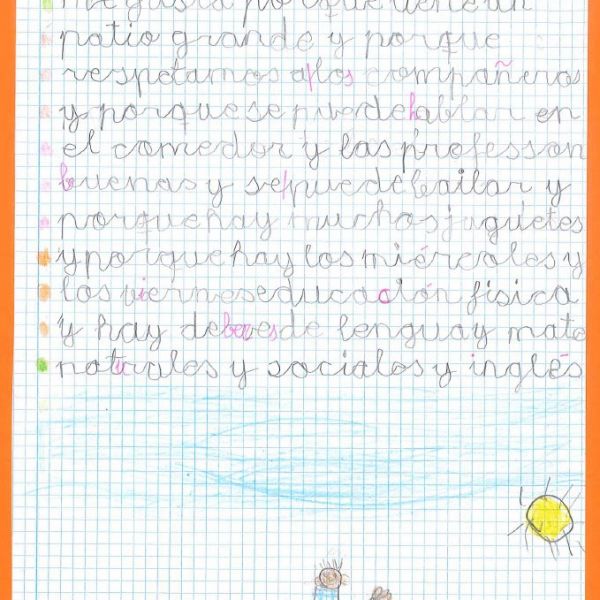 me gusta porque tiene un
patio grande y porque
respetamos a los compañeros
y porque se puede hablar en
el comedor y las profes son
buenas y se puede bailar y
porque hay muchos juguetes
y porque hay los miércoles y
los viernes educación física
y hay deberes de lengua y mate
naturales y sociales y inglés